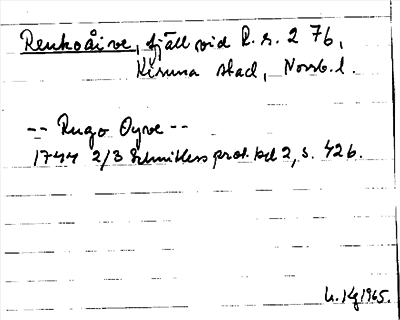 Renkoåive, fjäll vid R. r. 2 76,
Kiruna stad, Norrb. l.
-- Rugo Oyve --
1744 2/3 Schnitlers prot. bd 2, s. 426.
1965.